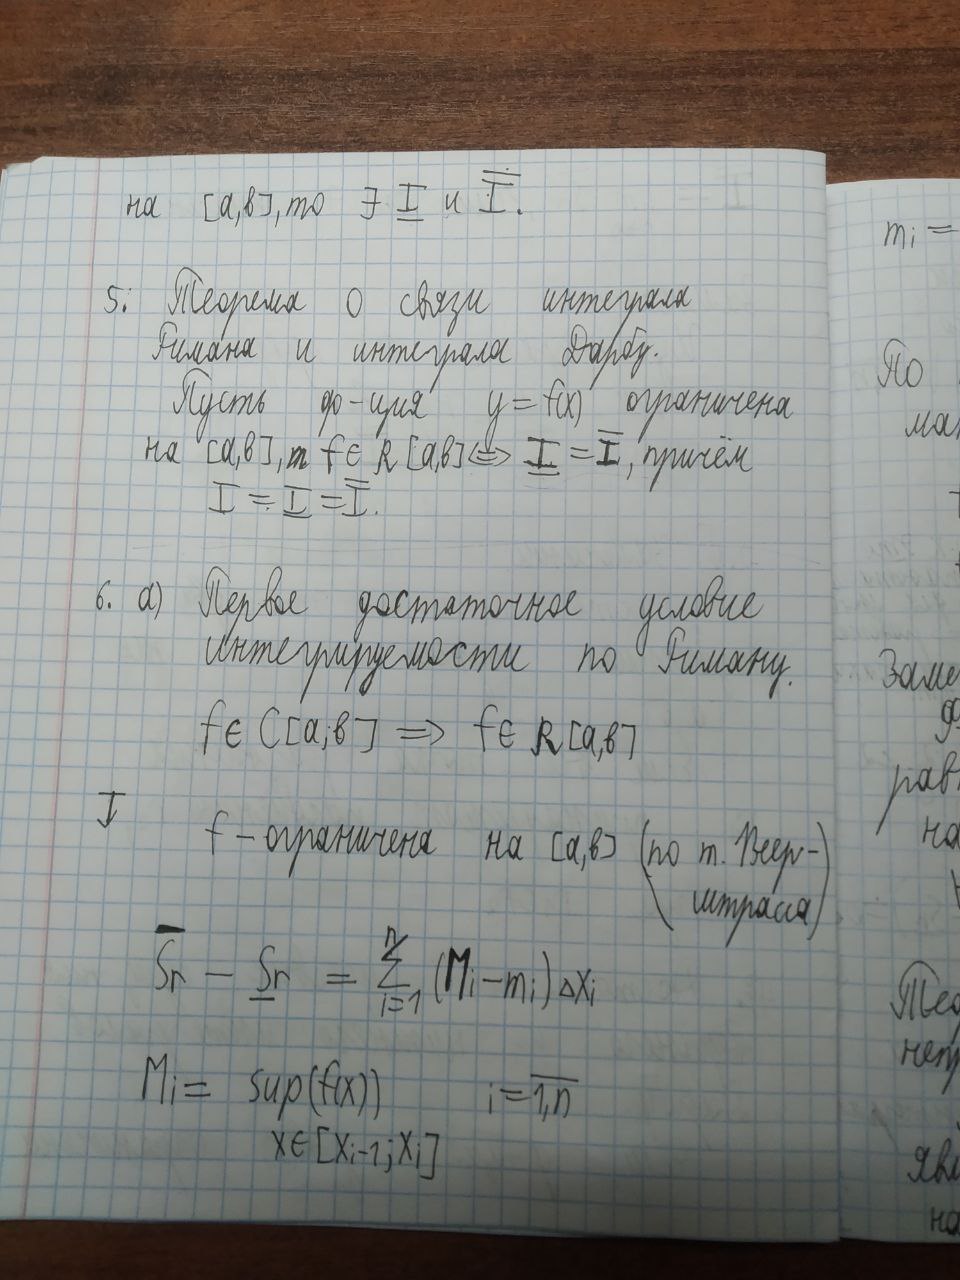 на [a,в], то ∃ I̲ и I̅.
5. Теорема о связи интеграла
Римана и интеграла Дарбу.
Пусть ф-ция y = f(x) ограничена
на [a,в], т f ∈ R [a,в] <=> I̲ = I̅, причём
I = I̲ = I̅.
6. а) Первое достаточное условие
интегрируемости по Риману.
f ∈ C[a;в] => f ∈ R[a,в]
I
f – ограничена на [a,в] (по т. Веер-
штрасса)
S̅r – S̲r = n∑i=1 (Mi – mi) Δxi
Mi = sup(f(x)) i = 1,n
x ∈ [xi-1; xi]
mi =
По
Заме
рав
на
Тео
неп
яви
на